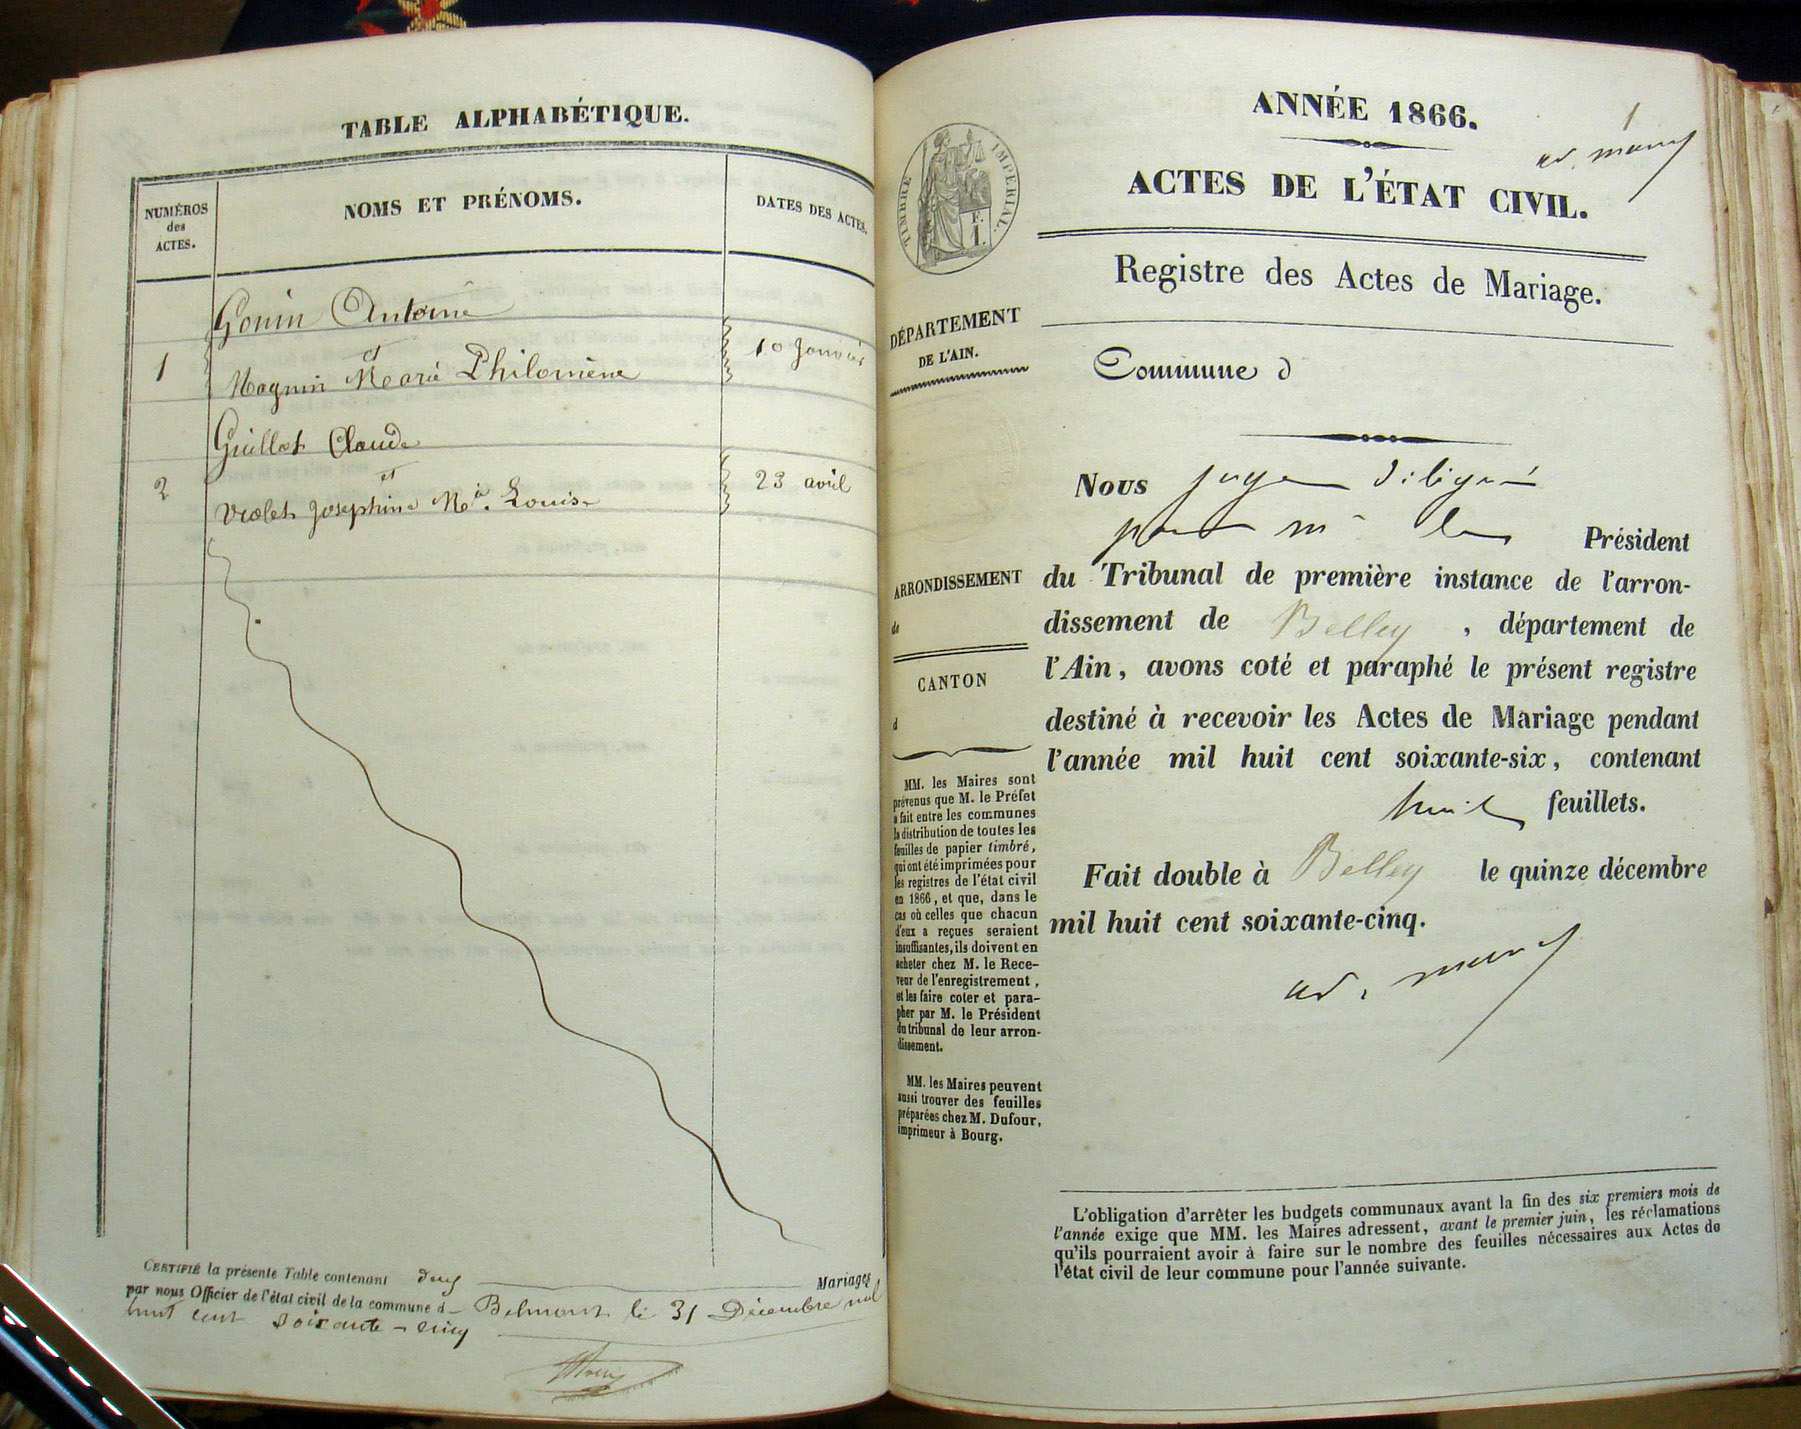 TABLE ALPHABÉTIQUE.
NUMÉROS
des
ACTES.
NOMS ET PRÉNOMS.
DATES DES ACTES.
Gonin Antoine
1
et
10 Janvier
Magnin Marie Philomène
Guillot Claude
2
et
23 avril
Violet Josephine Mie. Louise
CERTIFIÉ la présente Table contenant deux Mariages
par nous Officier de l'état civil de la commune d Belmont le 31 Décembre mil
huit cent soixante-cinq
ANNÉE 1866.
1
ACTES DE L'ÉTAT CIVIL.
Registre des Actes de Mariage.
TIMBRE IMPÉRIAL.
F.
1.
DÉPARTEMENT
DE L'AIN.
Commune d
ARRONDISSEMENT
de
CANTON
d
MM. les Maires sont
prévenus que M. le Préfet
a fait entre les communes
la distribution de toutes les
feuilles de papier timbré,
qui ont été imprimées pour
les registres de l'état civil
en 1866, et que, dans le
cas où celles que chacun
d'eux a reçues seraient
insuffisantes, ils doivent en
acheter chez M. le Rece-
veur de l'enregistrement,
et les faire coter et para-
pher par M. le Président
du tribunal de leur arron-
dissement.
MM. les Maires peuvent
aussi trouver des feuilles
préparées chez M. Dufour,
imprimeur à Bourg.
Nous juge délégué
pour Mr le Président
du Tribunal de première instance de l'arron-
dissement de Belley, département de
l'Ain, avons coté et paraphé le présent registre
destiné à recevoir les Actes de Mariage pendant
l'année mil huit cent soixante-six, contenant
huit feuillets.
Fait double à Belley le quinze décembre
mil huit cent soixante-cinq.
L'obligation d'arrêter les budgets communaux avant la fin des six premiers mois de
l'année exige que MM. les Maires adressent, avant le premier juin, les réclamations
qu'ils pourraient avoir à faire sur le nombre des feuilles nécessaires aux Actes de
l'état civil de leur commune pour l'année suivante.